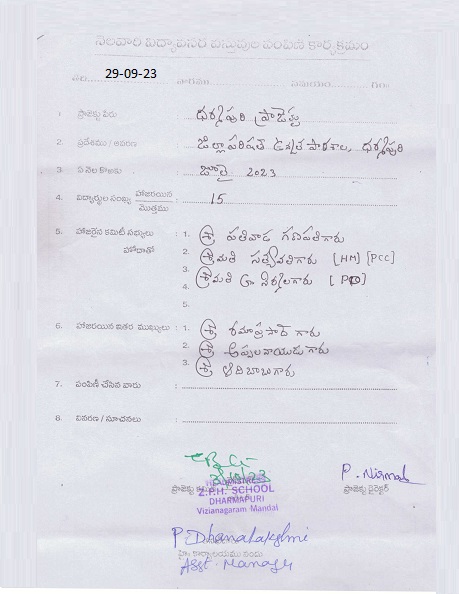 నెలవారీ విద్యావసర వస్తువుల పంపిణీ కార్యక్రమం
తేది. 29-09-23 వారము సమయం గం॥
1. ప్రాజెక్టు పేరు ధర్మపురి ప్రాజెక్టు
2. ప్రదేశము / ఆవరణ జిల్లా పరిషత్ ఉన్నత పాఠశాల, ధర్మపురి
3. ఏ నెల కొఱకు జూలై 2023
4. విద్యార్థుల సంఖ్య హాజరయిన 15
మొత్తము
5. హాజరైన కమిటీ సభ్యులు : 1. శ్రీ పతివాడ గణపతిగారు
హోదాతో 2. శ్రీమతి సత్యవతిగారు [HM] [PCC]
3.
4. శ్రీమతి నిర్మలగారు [PD]
5.
6. హాజరయిన ఇతర ముఖ్యులు : 1. శ్రీ రమాప్రసాద్ గారు
2. శ్రీ అప్పలనాయుడు గారు
3. శ్రీ ఆదిబాబుగారు
7. పంపిణీ చేసిన వారు :
8. వివరణ / సూచనలు :
P. Nirmal
ప్రాజెక్టు ప్రాజెక్టు డైరెక్టర్
Z.P.H. SCHOOL
DHARMAPURI
Vizianagaram Mandal
P. Dhanalakshmi
హి కార్యాలయము నందు
Asst. Manager